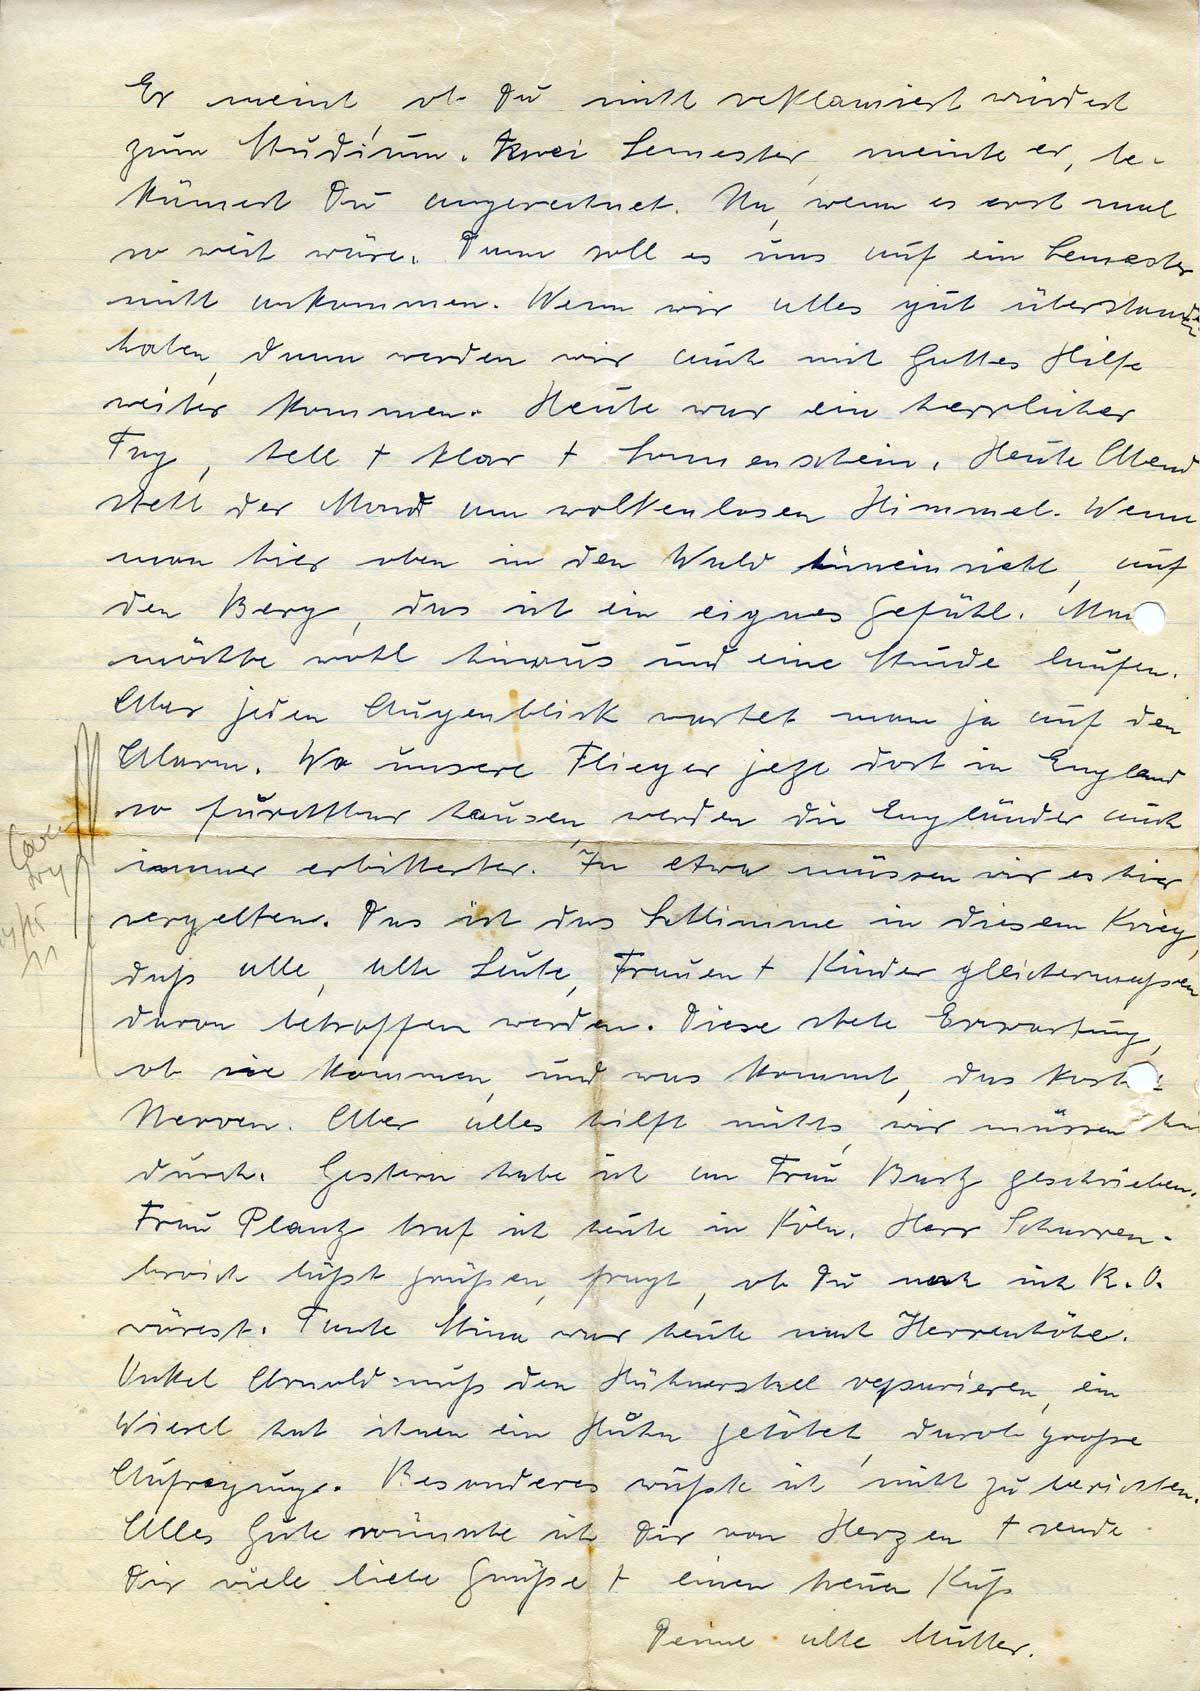 Er meint, ob Du nicht reklamiert würdest
zum Studium. Zwei Semester, meinte er, be-
kämest Du angerechnet. Na, wenn es erst mal
so weit wäre. Dann soll es uns auf ein Semester
nicht ankommen. Wenn wir alles gut überstanden
haben, dann werden wir auch mit Gottes Hilfe
weiter kommen. Heute war ein herrlicher
Tag, hell + klar + Sonnenschein. Heute Abend
steht der Mond am wolkenlosen Himmel. Wenn
man hier oben in den Wald hineinsieht, auf
den Berg, das ist ein eignes Gefühl. Man
möchte wohl hinaus und eine Stunde laufen.
Aber jeden Augenblick wartet man ja auf den
Alarm. Wo unsere Flieger jetzt dort in England
so furchtbar hausen, werden die Engländer auch
immer erbitterter. In etwa müssen wir es hier
vergelten. Das ist das Schlimme in diesem Krieg,
daß alle, alte Leute, Frauen + Kinder gleichermaßen
davon betroffen werden. Diese stete Erwartung,
ob sie kommen, und was kommt, das kostet
Nerven. Aber alles hilft nichts, wir müssen
durch. Gestern habe ich an Frau Bartz geschrieben.
Frau Plantz traf ich heute in Köln. Herr Scharren-
broich läßt grüßen, fragt, ob Du noch nicht R.O.
wärest. Tante Mina war heute nach Herrenhöhe.
Onkel Arnold muß den Hühnerstall reparieren, ein
Wiesel hat ihnen ein Huhn getötet, darob große
Aufregung. Besonderes wüßte ich nicht zu berichten.
Alles Gute wünsche ich Dir von Herzen + sende
Dir viele liebe Grüße + einen treuen Kuß
Deine alte Mutter.